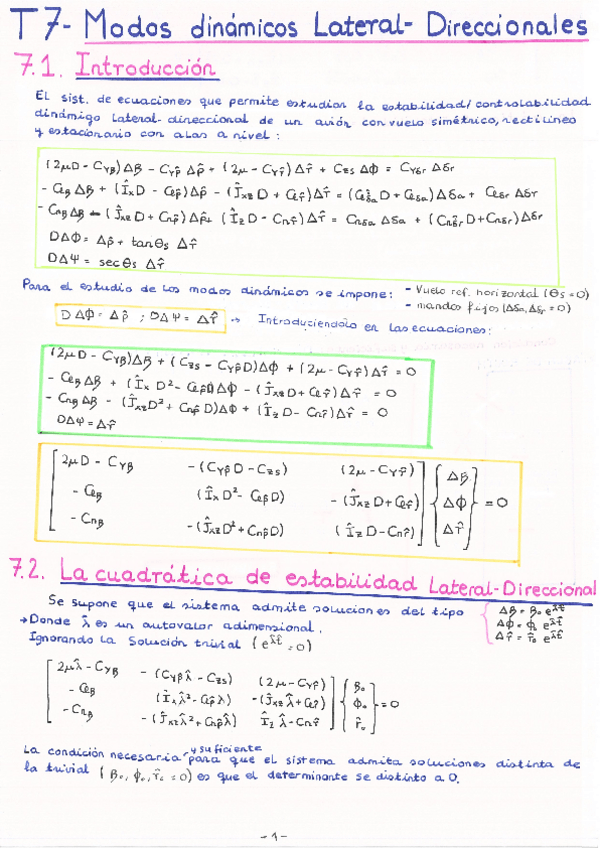 T7- Modos dinámicos Lateral- Direccionales
7.1. Introducción
El sist. de ecuaciones que permite estudiar la estabilidad/controlabilidad
dinámiga lateral-direccional de un avión con vuelo simétrico, rectilíneo
y estacionario con alas a nivel:
(2μD - Cyβ)Δβ - Cyp̂ Δp̂ + (2μ - Cyr̂)Δr̂ + Czs ΔΦ = Cyδr Δδr
- Clβ Δβ + (Îx D - Clp̂)Δp̂ - (Ĵxz D + Clr̂)Δr̂ = (Clδ̇a D + Clδa)Δδa + Clδr Δδr
- Cnβ Δβ - (Ĵxz D + Cnp̂)Δp̂ + (Îz D - Cnr̂)Δr̂ = Cnδa Δδa + (Cnδ̇r D + Cnδr)Δδr
DΔΦ = Δp̂ + tanθs Δr̂
DΔΨ = secθs Δr̂
Para el estudio de los modos dinámicos se impone: - Vuelo ref. horizontal (θs = 0)
- mandos fijos (Δδa, Δδr = 0)
DΔΦ = Δp̂ ; DΔΨ = Δr̂ → Introduciendolo en las ecuaciones:
(2μD - Cyβ)Δβ + (Czs - Cyp̂D)ΔΦ + (2μ - Cyr̂)Δr̂ = 0
- Clβ Δβ + (Îx D² - Clp̂D)ΔΦ - (Ĵxz D + Clr̂)Δr̂ = 0
- Cnβ Δβ - (ĴxzD² + Cnp̂D)ΔΦ + (Îz D - Cnr̂)Δr̂ = 0
DΔΨ = Δr̂
2μD - Cyβ - (Cyp̂D - Czs) (2μ - Cyr̂) Δβ
- Clβ (Îx D² - Clp̂D) - (Ĵxz D + Clr̂) ΔΦ = 0
- Cnβ - (ĴxzD² + Cnp̂D) (Îz D - Cnr̂) Δr̂
7.2. La cuadrática de estabilidad Lateral-Direccional
Se supone que el sistema admite soluciones del tipo Δβ = β₀ e^λ̂t̂
→ Donde λ̂ es un autovalor adimensional. ΔΦ = Φ₀ e^λ̂t̂
Ignorando la solución trivial (e^λ̂t̂ = 0) Δr̂ = r̂₀ e^λ̂t̂
2μλ̂ - Cyβ - (Cyp̂λ̂ - Czs) (2μ - Cyr̂) β₀
- Clβ (Îxλ̂² - Clp̂λ̂) - (Ĵxz λ̂ + Clr̂) Φ₀ = 0
- Cnβ - (Ĵxzλ̂² + Cnp̂λ̂) Îz λ̂ - Cnr̂ r̂₀
La condición necesaria y suficiente para que el sistema admita soluciones distinta de
la trivial (β₀, Φ₀, r̂₀ = 0) es que el determinante se distinto a 0.
-1-